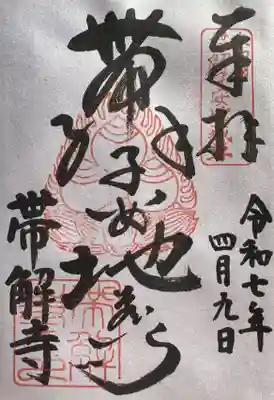 奉拝
令和七年
四月九日
帯解子安地蔵
帯解寺